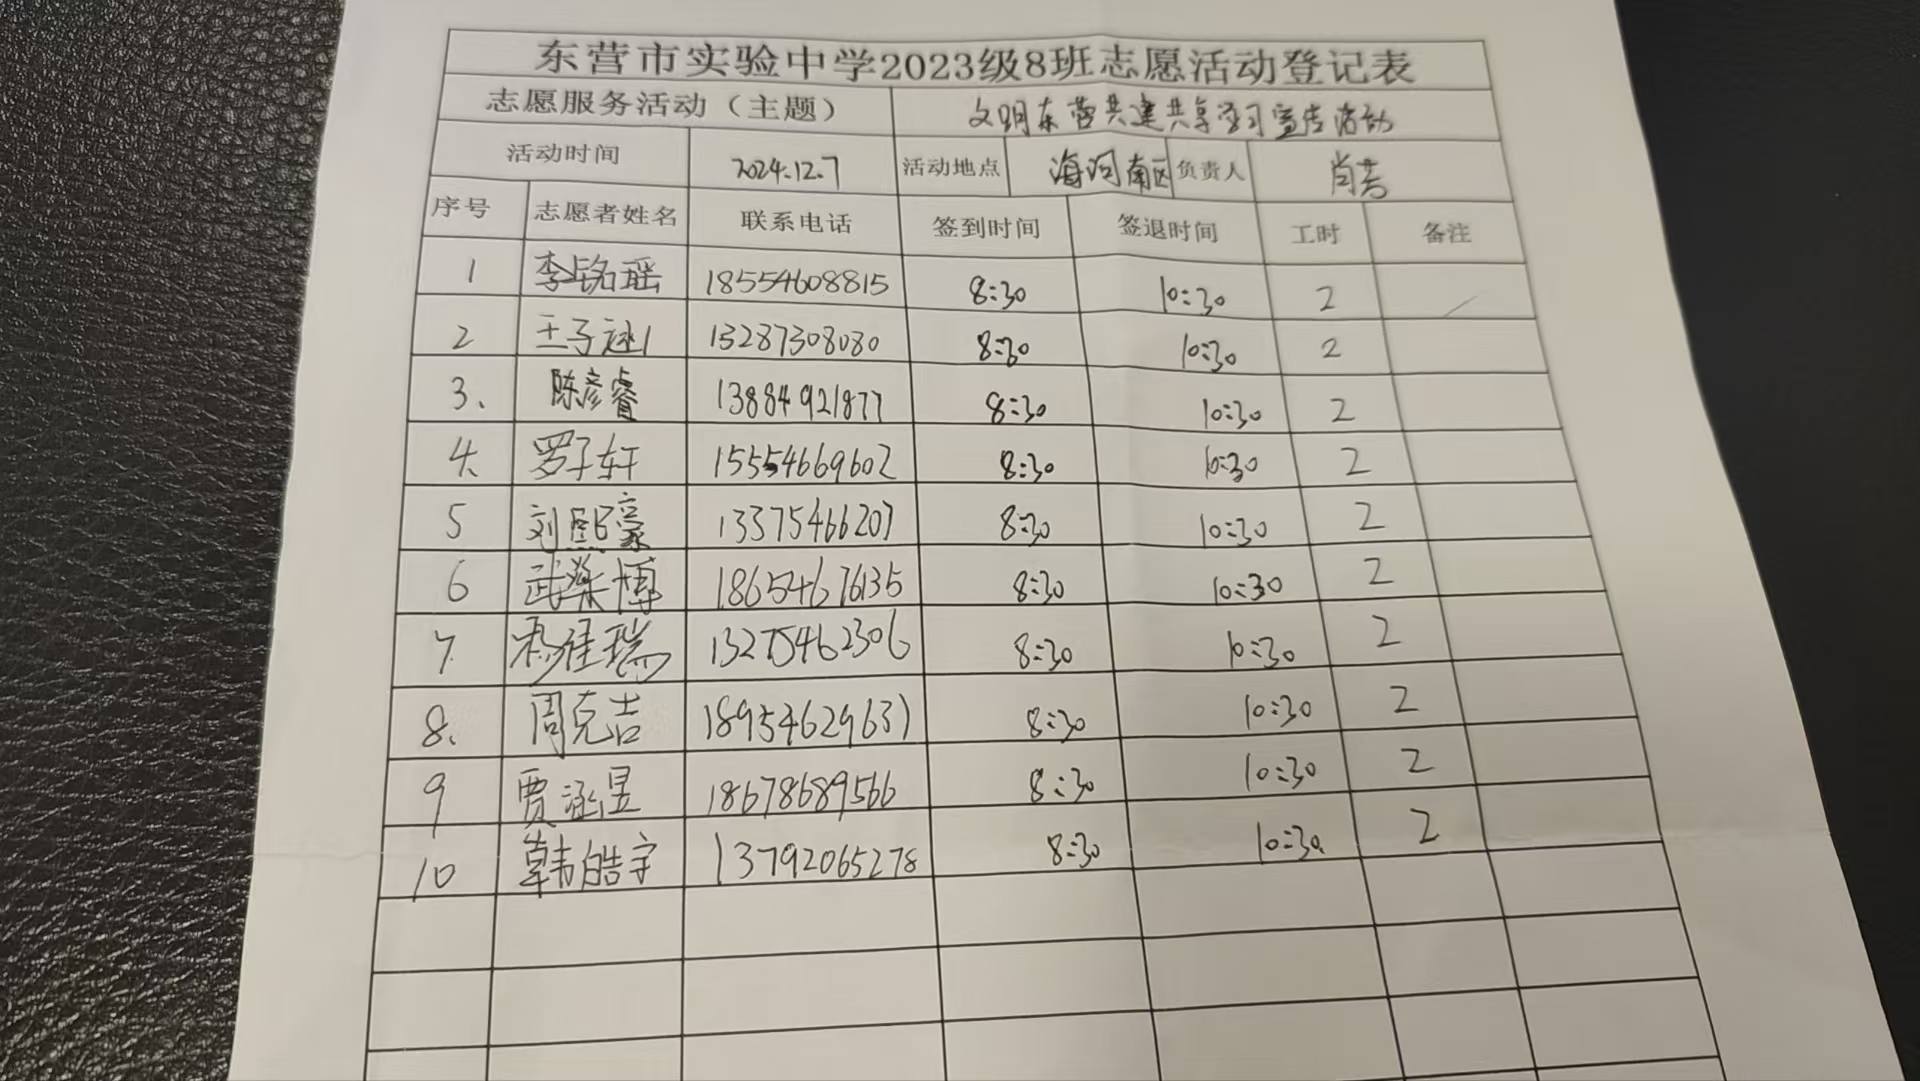 东营市实验中学2023级8班志愿活动登记表
志愿服务活动（主题） 文明东营共建共享学习宣传活动
活动时间 2024.12.7 活动地点 海河南区 负责人 肖芸
序号 志愿者姓名 联系电话 签到时间 签退时间 工时 备注
1 李铭瑶 18554608815 8:30 10:30 2
2 王子涵 13287308080 8:30 10:30 2
3、 陈彦睿 13884921877 8:30 10:30 2
4、 罗子轩 15554669602 8:30 10:30 2
5 刘熙豪 13375466207 8:30 10:30 2
6 武燊博 18654676135 8:30 10:30 2
7 瑞 13275462306 8:30 10:30 2
8、 周克吉 18954629637 8:30 10:30 2
9 贾涵昱 18678689566 8:30 10:30 2
10 韩皓宇 13792065278 8:30 10:30 2